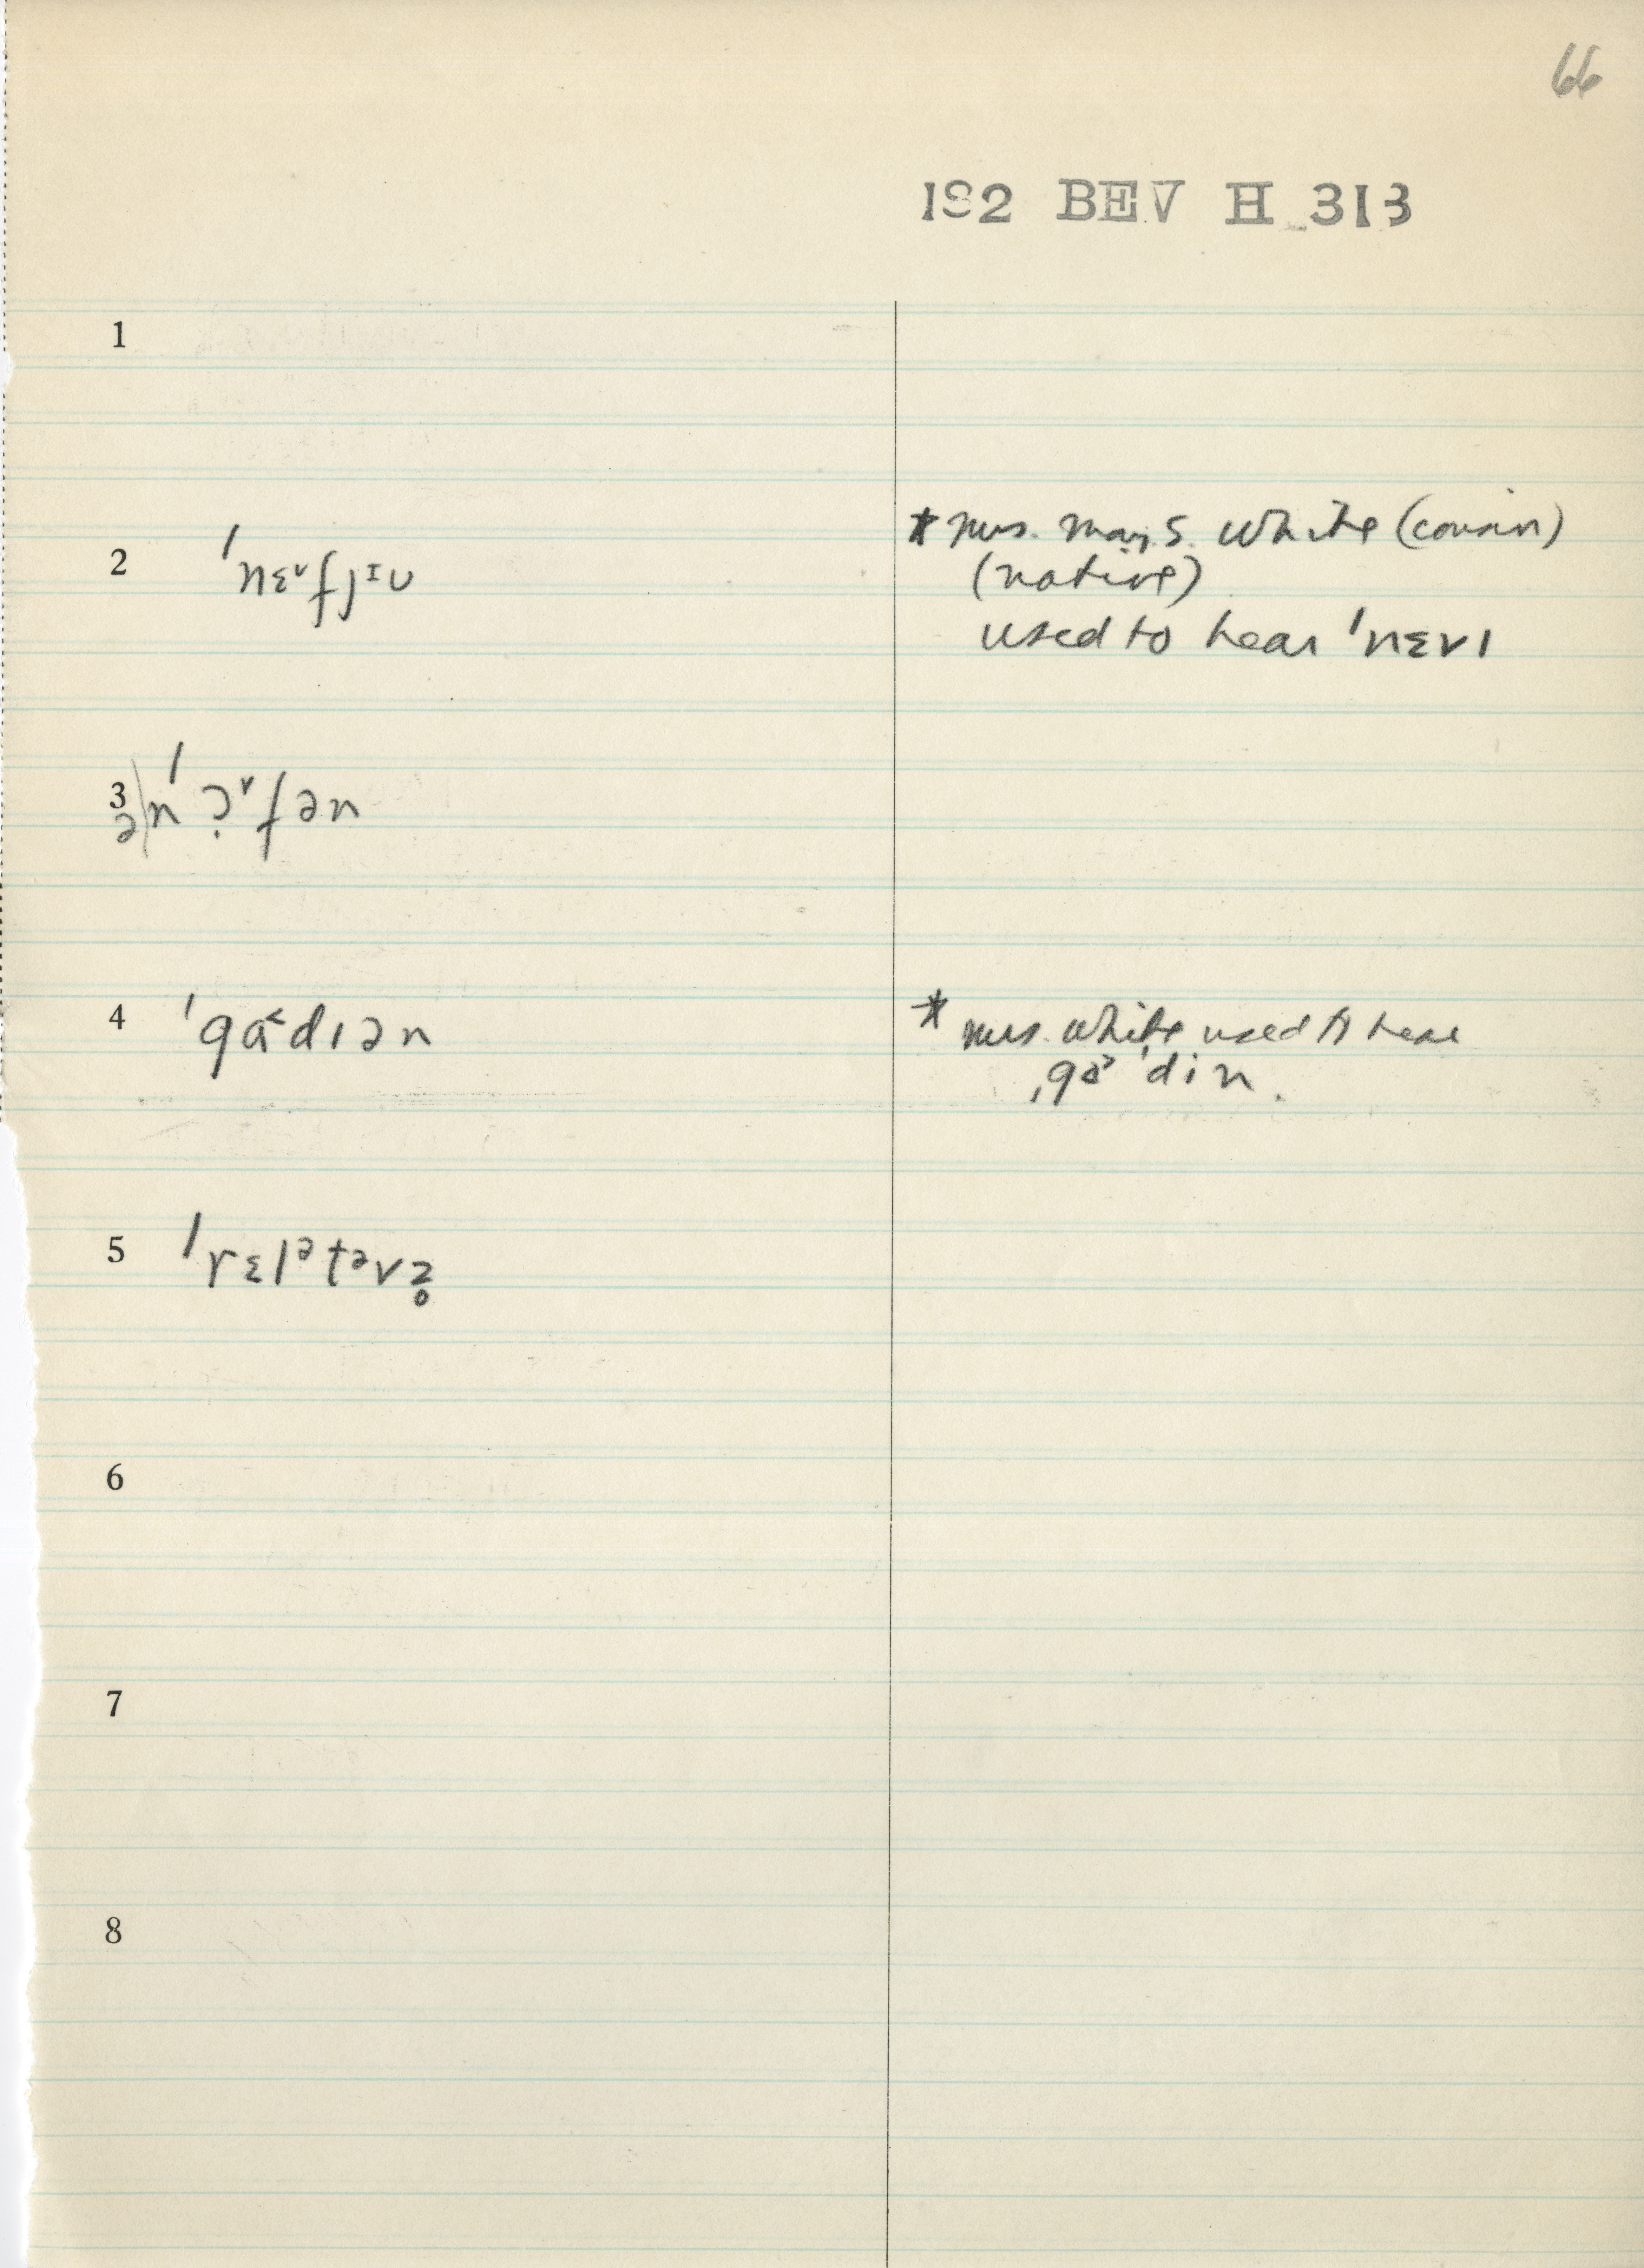 66
1S2 BEV H 313
1
2 ˈnɛᵛfjᶦu
* Mrs. May S. White (cousin)
(native)
used to hear ˈnɛvɪ
3
ə|nˈɔ̣ᵛfən
4 ˈgɑ˂dɪən
* Mrs. White used to hear
ˌgɑ˃ˈdin.
5 ˈrɛlᵊtᵊvz̥
6
7
8